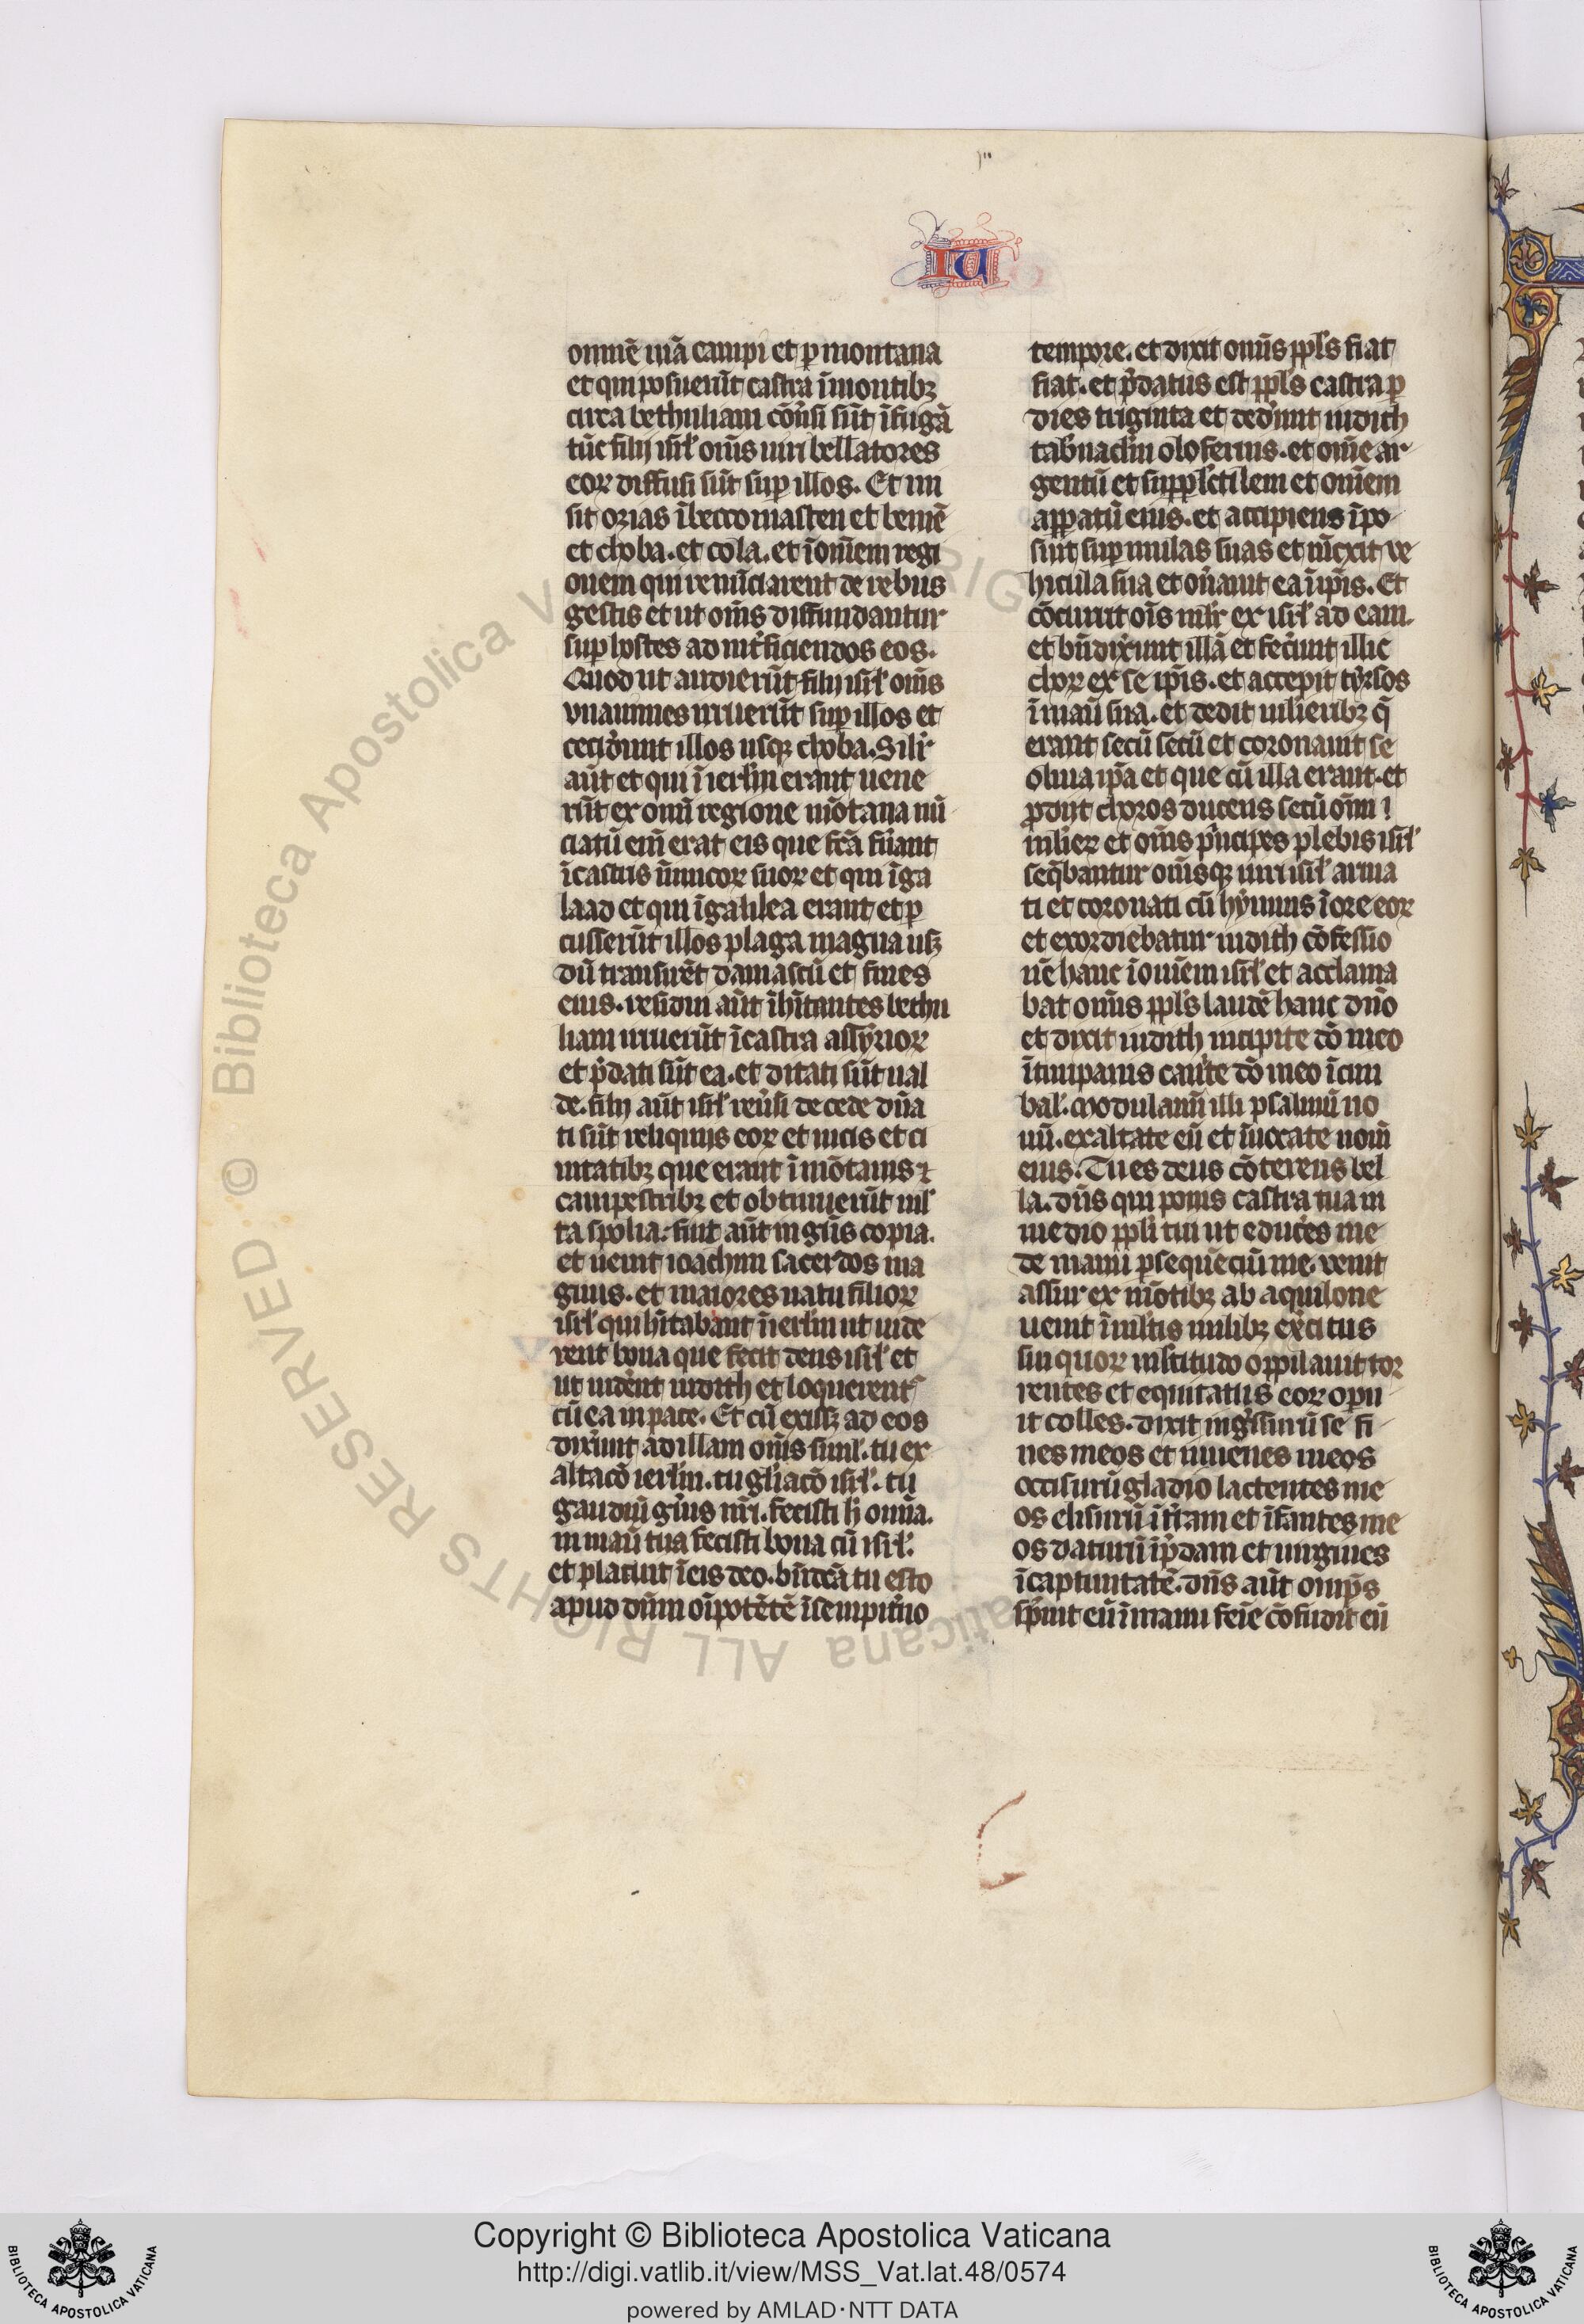 IU
omnē uiā campi et ꝑ montana
et qui posuerūt castra ī montibꝫ
circa bethuliam cōu̓si sūt ī fugā
tūc filij isrl̓ om̄s uiri bellatores
eoꝝ diffusi sūt suꝑ illos. Et mi
sit ozias ī beccomasten et bemē
et choba. et cola. et ī om̄em regi
onem qui renūciarent de rebus
gestis et ut om̄s diffundantur
suꝑ hostes ad int̓ficiendos eos.
Quod ut audierūt filij isrl̓ om̄s
vnanimes irruerūt suꝑ illos et
cecid̓unt illos usqꝫ choba. Silr̓
aūt et qui ī ierl̓m erant uene
rūt ex omī regione mōtana nū
ciatū em̄ erat eis que fc̄a fu̓ant
ī castris īimicoꝝ suoꝝ et qui ī ga
laad et qui ī galilea erant et ꝑ
cusserūt illos plaga magna usqꝫ
dū transirēt damascū et fines
eius. residui aūt īhītantes bethu
liam irruerūt ī castra assyrioꝝ
et p̓dati sūt ea. et ditati sūt ual
de. filij aūt isrl̓ reu̓si de cede dn̄a
ti sūt reliquijs eoꝝ et uicis et ci
uitatibꝫ que erant ī mōtanis ⁊
campestribꝫ et obtinuerūt ml̓
ta spolia. fuit aūt ingēs copia.
et uenit ioachim sacerdos ma
gnus. et maiores natu filioꝝ
isrl̓ qui hītabant ī ierl̓m ut uide
rent bona que fecit deus isrl̓ et
ut uid̓ent iudith et loquerent᷑
cū ea in pace. Et cū exissꝫ ad eos
dix̓unt ad illam om̄s simł. tu ex
altacō ierl̓m. tu gl̓iacō isrl̓. tu
gaudiū gn̓is nr̄i. fecisti h̓ omīa.
in manū tua fecisti bona cū isrl̓.
et placuit ī eis deo. bn̄dcā tu esto
apud dn̄m oīpotētē ī sempit̓no
tempore. et dixit omīs ppl̓s fiat
fiat. et p̓datus est ppl̓s castra ꝑ
dies triginta et ded̓unt iudith
tab̓naclm̄ olofernis. et om̄e ar
gentū et suppl̓ctilem et om̄em
apparatū eius. et accipiens īpo
suit suꝑ mulas suas et iūxit ve
hicula sua et on̓auit ea ī ip̄is. Et
cōcurrit oīs ml̓r ex isrl̓ ad eam.
et bn̄dix̓unt illā et fec̓unt illic
choꝝ ex se ip̄is. et accepit ty̓rsos
ī manū sua. et dedit mlieribꝫ q̄
erant secū secū et coronauit se
oliua ip̄a et que cū illa erant. et
ꝓdijt choros ducens secū oīm
ml̓ieꝝ et om̄s pn̓cipes plebis isrl̓
seq̄bantur om̄isqꝫ uiri isrl̓ arma
ti et coronati cū hymnis ī ore eoꝝ
et exordiebatur iudith cōfessio
nē hanc ī om̄em isrl̓ et acclama
bat om̄is ppl̓s laudē hanc dn̄o
et dixit iudith incipite dō meo
ī timpanis cant̓te dō meo ī cim
bal̓. modulamī illi psalmū no
uū. exaltate eū et īuocate nom̄
eius. Tu es deus cōterens bel
la. dn̄s qui ponis castra tua in
medio ppl̓i tui ut educ̓es me
de manū ꝑsequēciū me. venit
assur ex mōtibꝫ ab aquilone
uenit ī ml̓tis milibꝫ exc̓itus
sui quoꝝ multitudo oppilauit tor
rentes et equitatus eoꝝ opu
it colles. dixit ing̓ssurū se fi
nes meos et iuuenes meos
occisurū gladio lactentes me
os elisurū ī t̓ram et īfantes me
os daturū ī p̓dam et uirgines
ī captiuitatē. dn̄s aūt omp̄s
sp̓uit eū ī manu feīe cōfudit eū
© Biblioteca Apostolica Vaticana ALL RIGHTS RESERVED
Copyright © Biblioteca Apostolica Vaticana
http://digi.vatlib.it/view/MSS_Vat.lat.48/0574
powered by AMLAD·NTT DATA
BIBLIOTECA APOSTOLICA VATICANA
BIBLIOTECA APOSTOLICA VATICANA